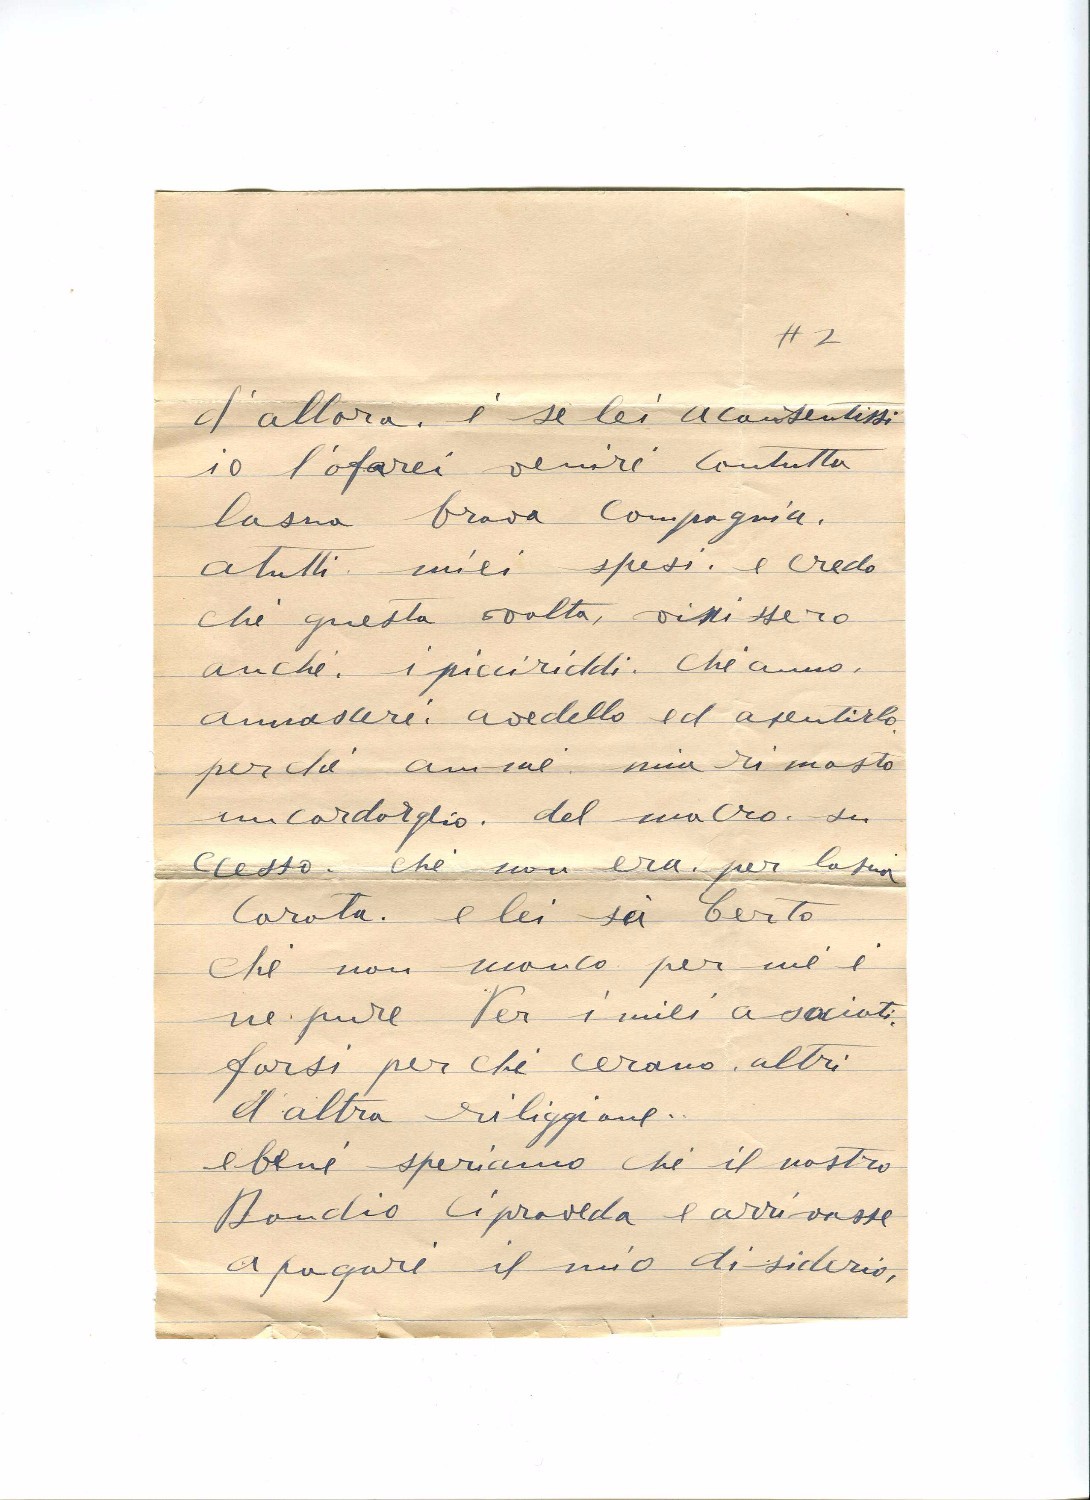 # 2
d'allora. é se lei aconsentissi
io l'ofarei veniré contutta
lasua brava Compagnia.
atutti miei spesi. e credo
ché questa volta, vinissero
anché. i piciriddi. ché anno.
avedello ed asentirlo,
perché ammé mia rimasto
uncordorglio. del macro. su
ccesso. ché non era. per lasua
Carota. e lei sà Certo
ché non manco per mé é
ne. pure Per i miei asociati.
forsi perché cerano. altri
d'altra riliggione..
ebené speriamo ché il nostro
Bondio Ciproveda e arrivasse
apagaré il mio disiderio,